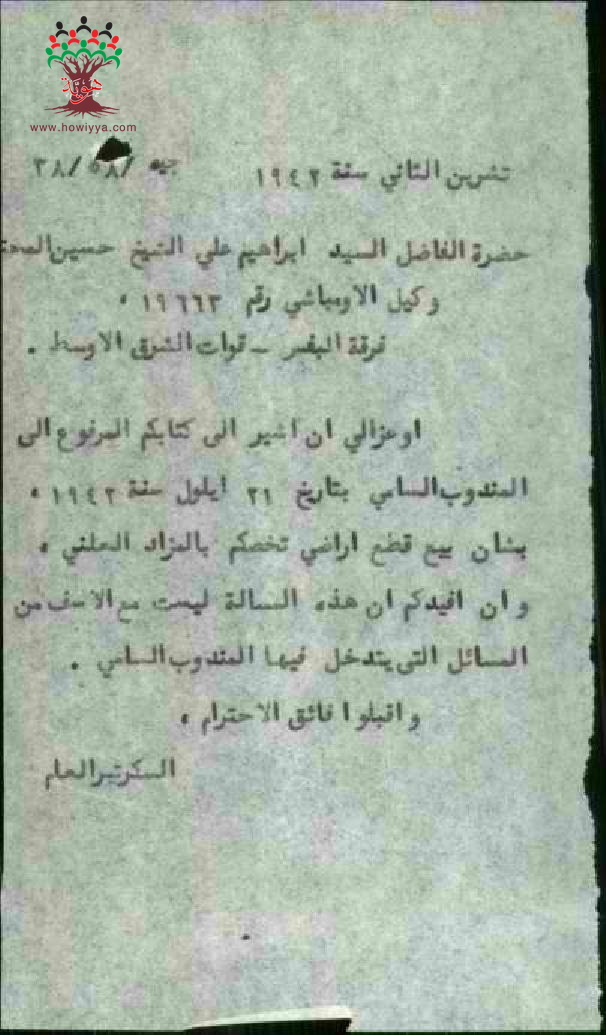 هوية
www.howiyya.com
جيه /٥٨/ ٣٨
تشرين الثاني سنة ١٩٤٢
حضرة الفاضل السيد ابراهيم علي الشيخ حسين
وكيل الاومباشي رقم ١٩٦٦٣ ،
فرقة البفس ــ قوات الشرق الاوسط .
اوعزالي ان اشير الى كتابكم المرفوع الى
المندوب السامي بتاريخ ٢١ ايلول سنة ١٩٤٢ ،
بشان بيع قطع اراضي تخصكم بالمزاد العلني ،
وان افيدكم ان هذه المسالة ليست مع الاسف من
المسائل التي يتدخل فيها المندوب السامي .
واقبلوا فائق الاحترام ،
السكرتير العام